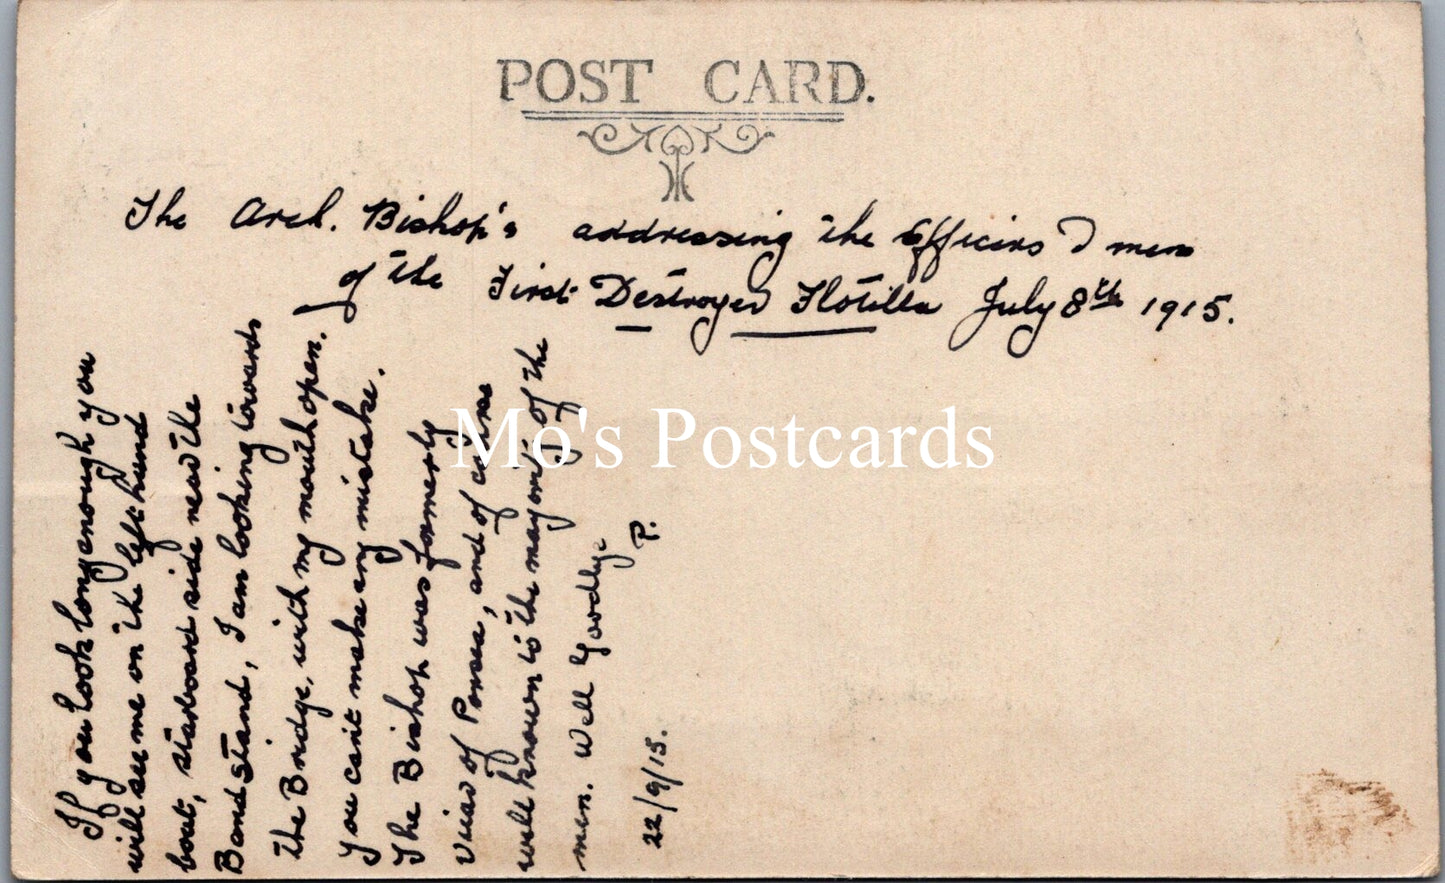 POST CARD.
The Arch. Bishop's addressing the Officers & men
of the First Destroyer Flotilla July 8th 1915.
If you look long enough you
will see me on the left hand
boat, starboard side near the
Bandstand, I am looking towards
the Bridge, with my mouth open.
You can't make any mistake.
The Bishop was formerly
Vicar of Portsea, and of course
well known to the majority of the
men. Well Goodbye
P.
22/9/15.
Mo's Postcards